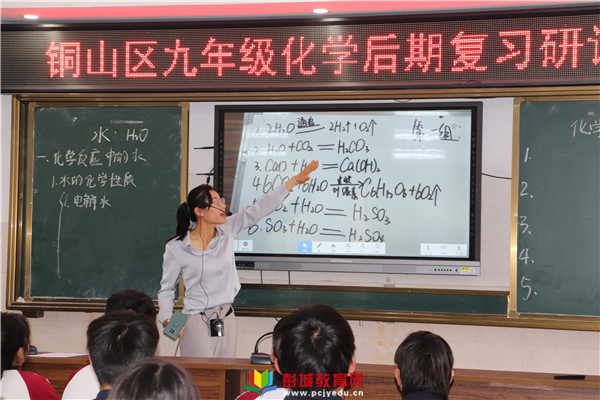 铜山区九年级化学后期复习研讨
水：H₂O
一.化学反应中的水
1.水的化学性质
⑴.电解水
第一组:
1. 2H₂O 通电 2H₂↑+O₂↑
2. H₂O+CO₂=H₂CO₃
3. CaO+H₂O=Ca(OH)₂
4. 6CO₂+6H₂O 光照 叶绿素 C₆H₁₂O₆+6O₂↑
SO₂+H₂O=H₂SO₃
6. SO₃+H₂O=H₂SO₄
化学
1.
2.
3.
4.
5.
彭城教育网
www.pcjyedu.cn